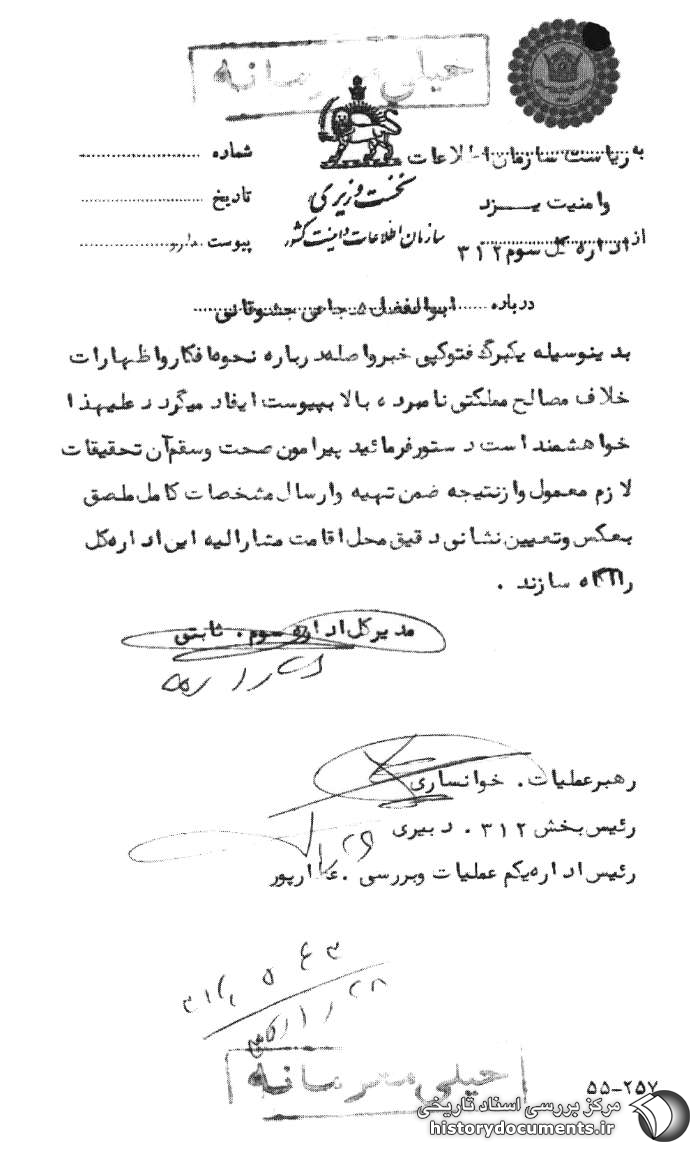 خیلی محرمانه
به ریاست سازمان اطلاعات
وامنیت یزد
از اداره کل سوم ۳۱۲
نخست وزیری
سازمان اطلاعات و امنیت کشور
شماره
تاریخ
پیوست دارد
درباره ابوالفضل شجاعی جشوقانی
بدینوسیله یکبرگ فتوکپی خبرواصله درباره نحوه افکار و اظهارات
خلاف مصالح مملکتی نامبرده بالا بپیوست ایفاد میگردد علیهذا
خواهشمند است دستور فرمائید پیرامون صحت وسقم آن تحقیقات
لازم معمول واز نتیجه ضمن تهیه وارسال مشخصات کامل ملصق
بعکس وتعیین نشانی دقیق محل اقامت مشارالیه این اداره کل
را آگاه سازند .
مدیرکل اداره سوم . ثابتی
رهبرعملیات . خوانساری
رئیس بخش ۳۱۲ . دبیری
رئیس اداره یکم عملیات وبررسی .
خیلی محرمانه
۵۵-۲۵۷
مرکز بررسی اسناد تاریخی
historydocuments.ir